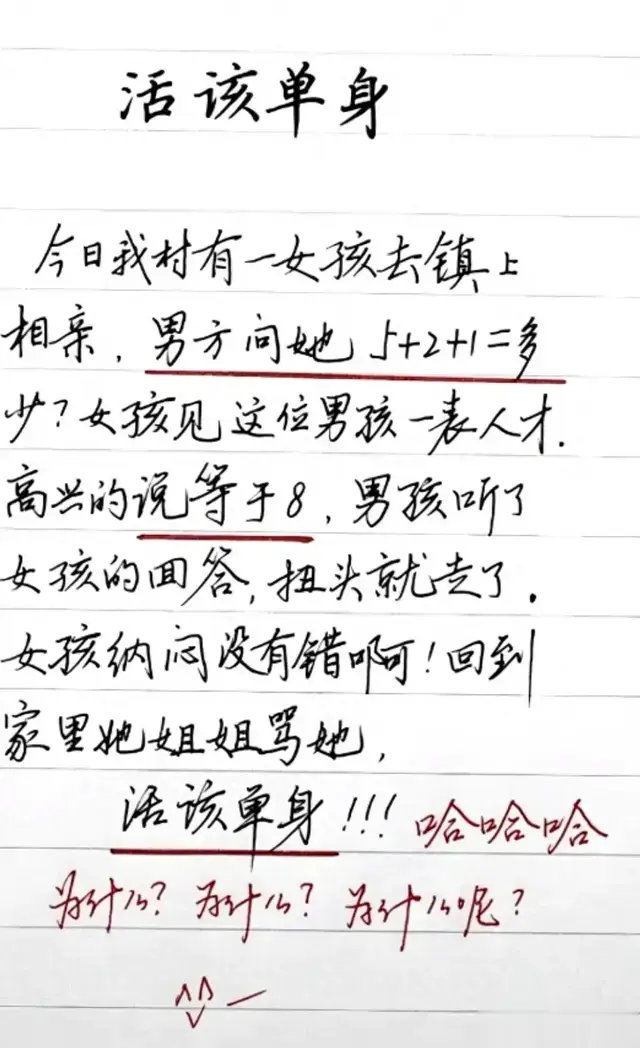 活该单身
今日我村有一女孩去镇上
相亲，男方向她 5+2+1=多
少？女孩见这位男孩一表人才.
高兴的说等于8，男孩听了
女孩的回答，扭头就走了.
女孩纳闷没有错啊！回到
家里她姐姐骂她，
活该单身!!! 哈哈哈
为什么？为什么？为什么呢？